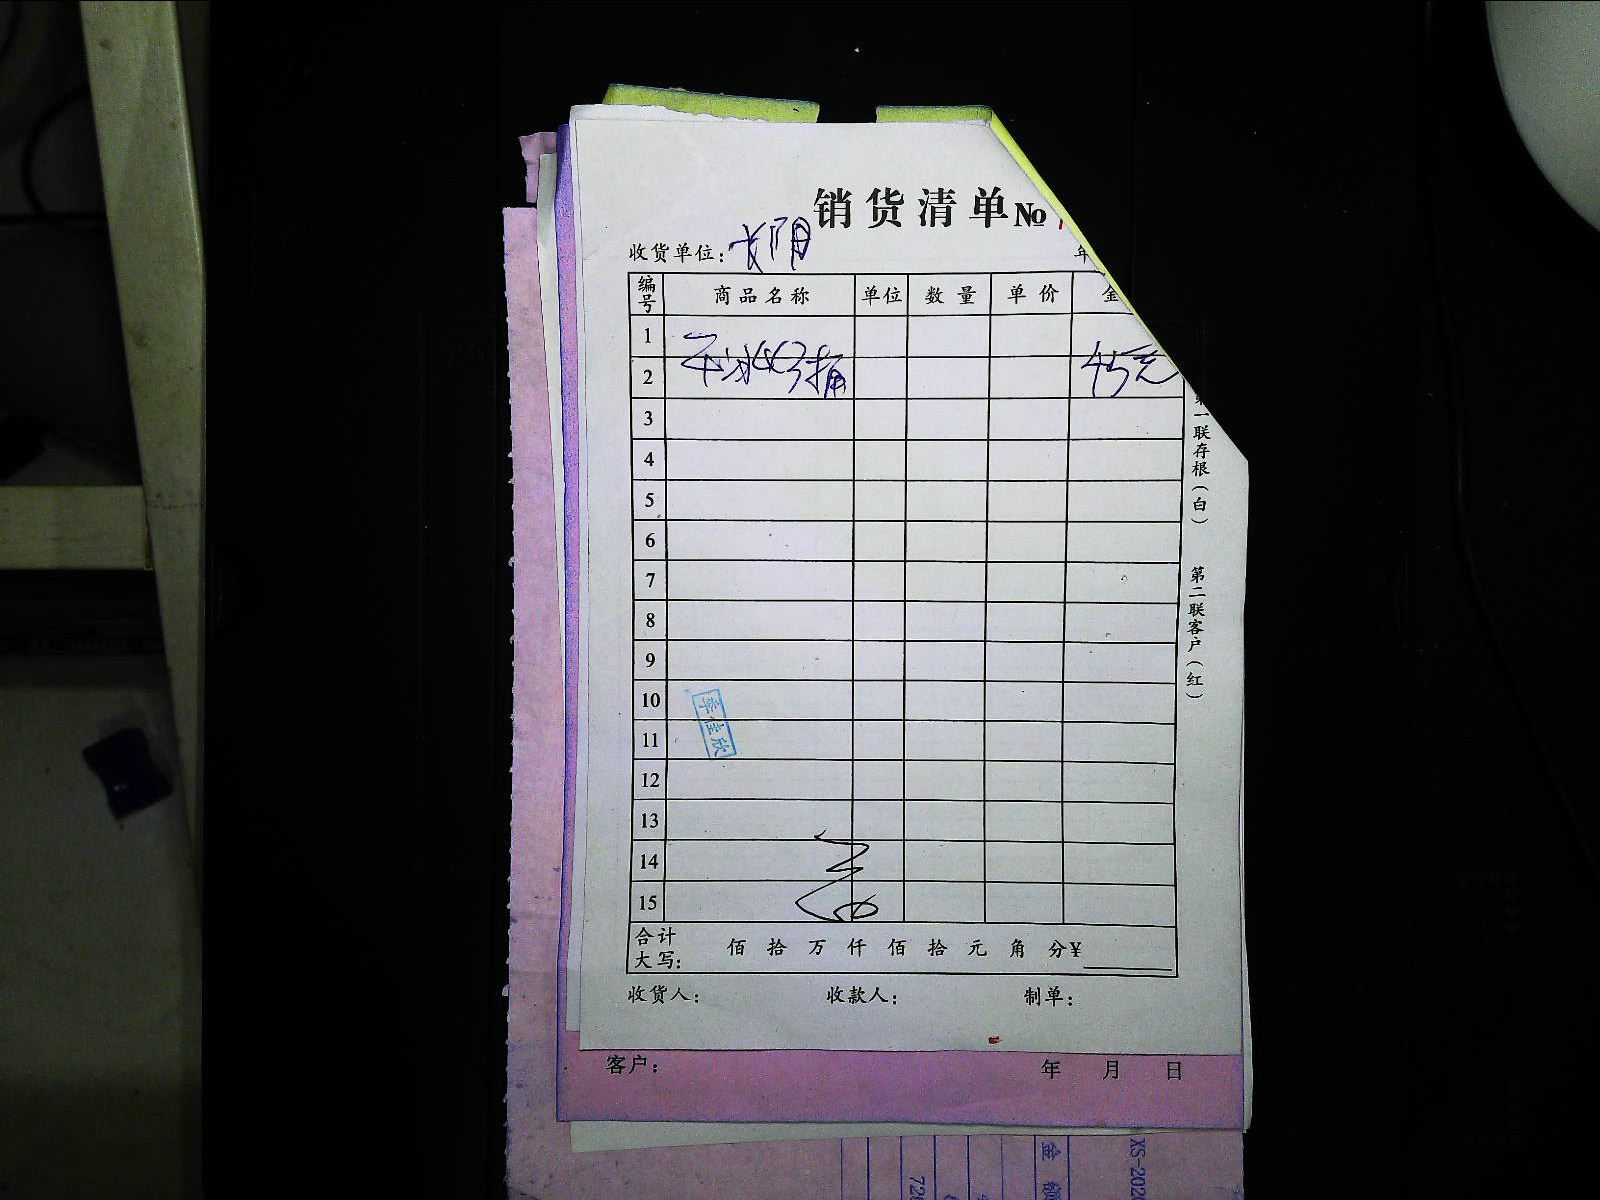 销货清单 №
收货单位: 长阴
年
编号 商品名称 单位 数量 单价 金
1
2 45元
3
4
5
6
7
8
9
10
11
12
13
14
15
李佳欣
合计大写: 佰 拾 万 仟 佰 拾 元 角 分 ¥
收货人: 收款人: 制单:
第一联存根(白) 第二联客户(红)
客户: 年 月 日
金额
XS-202
72